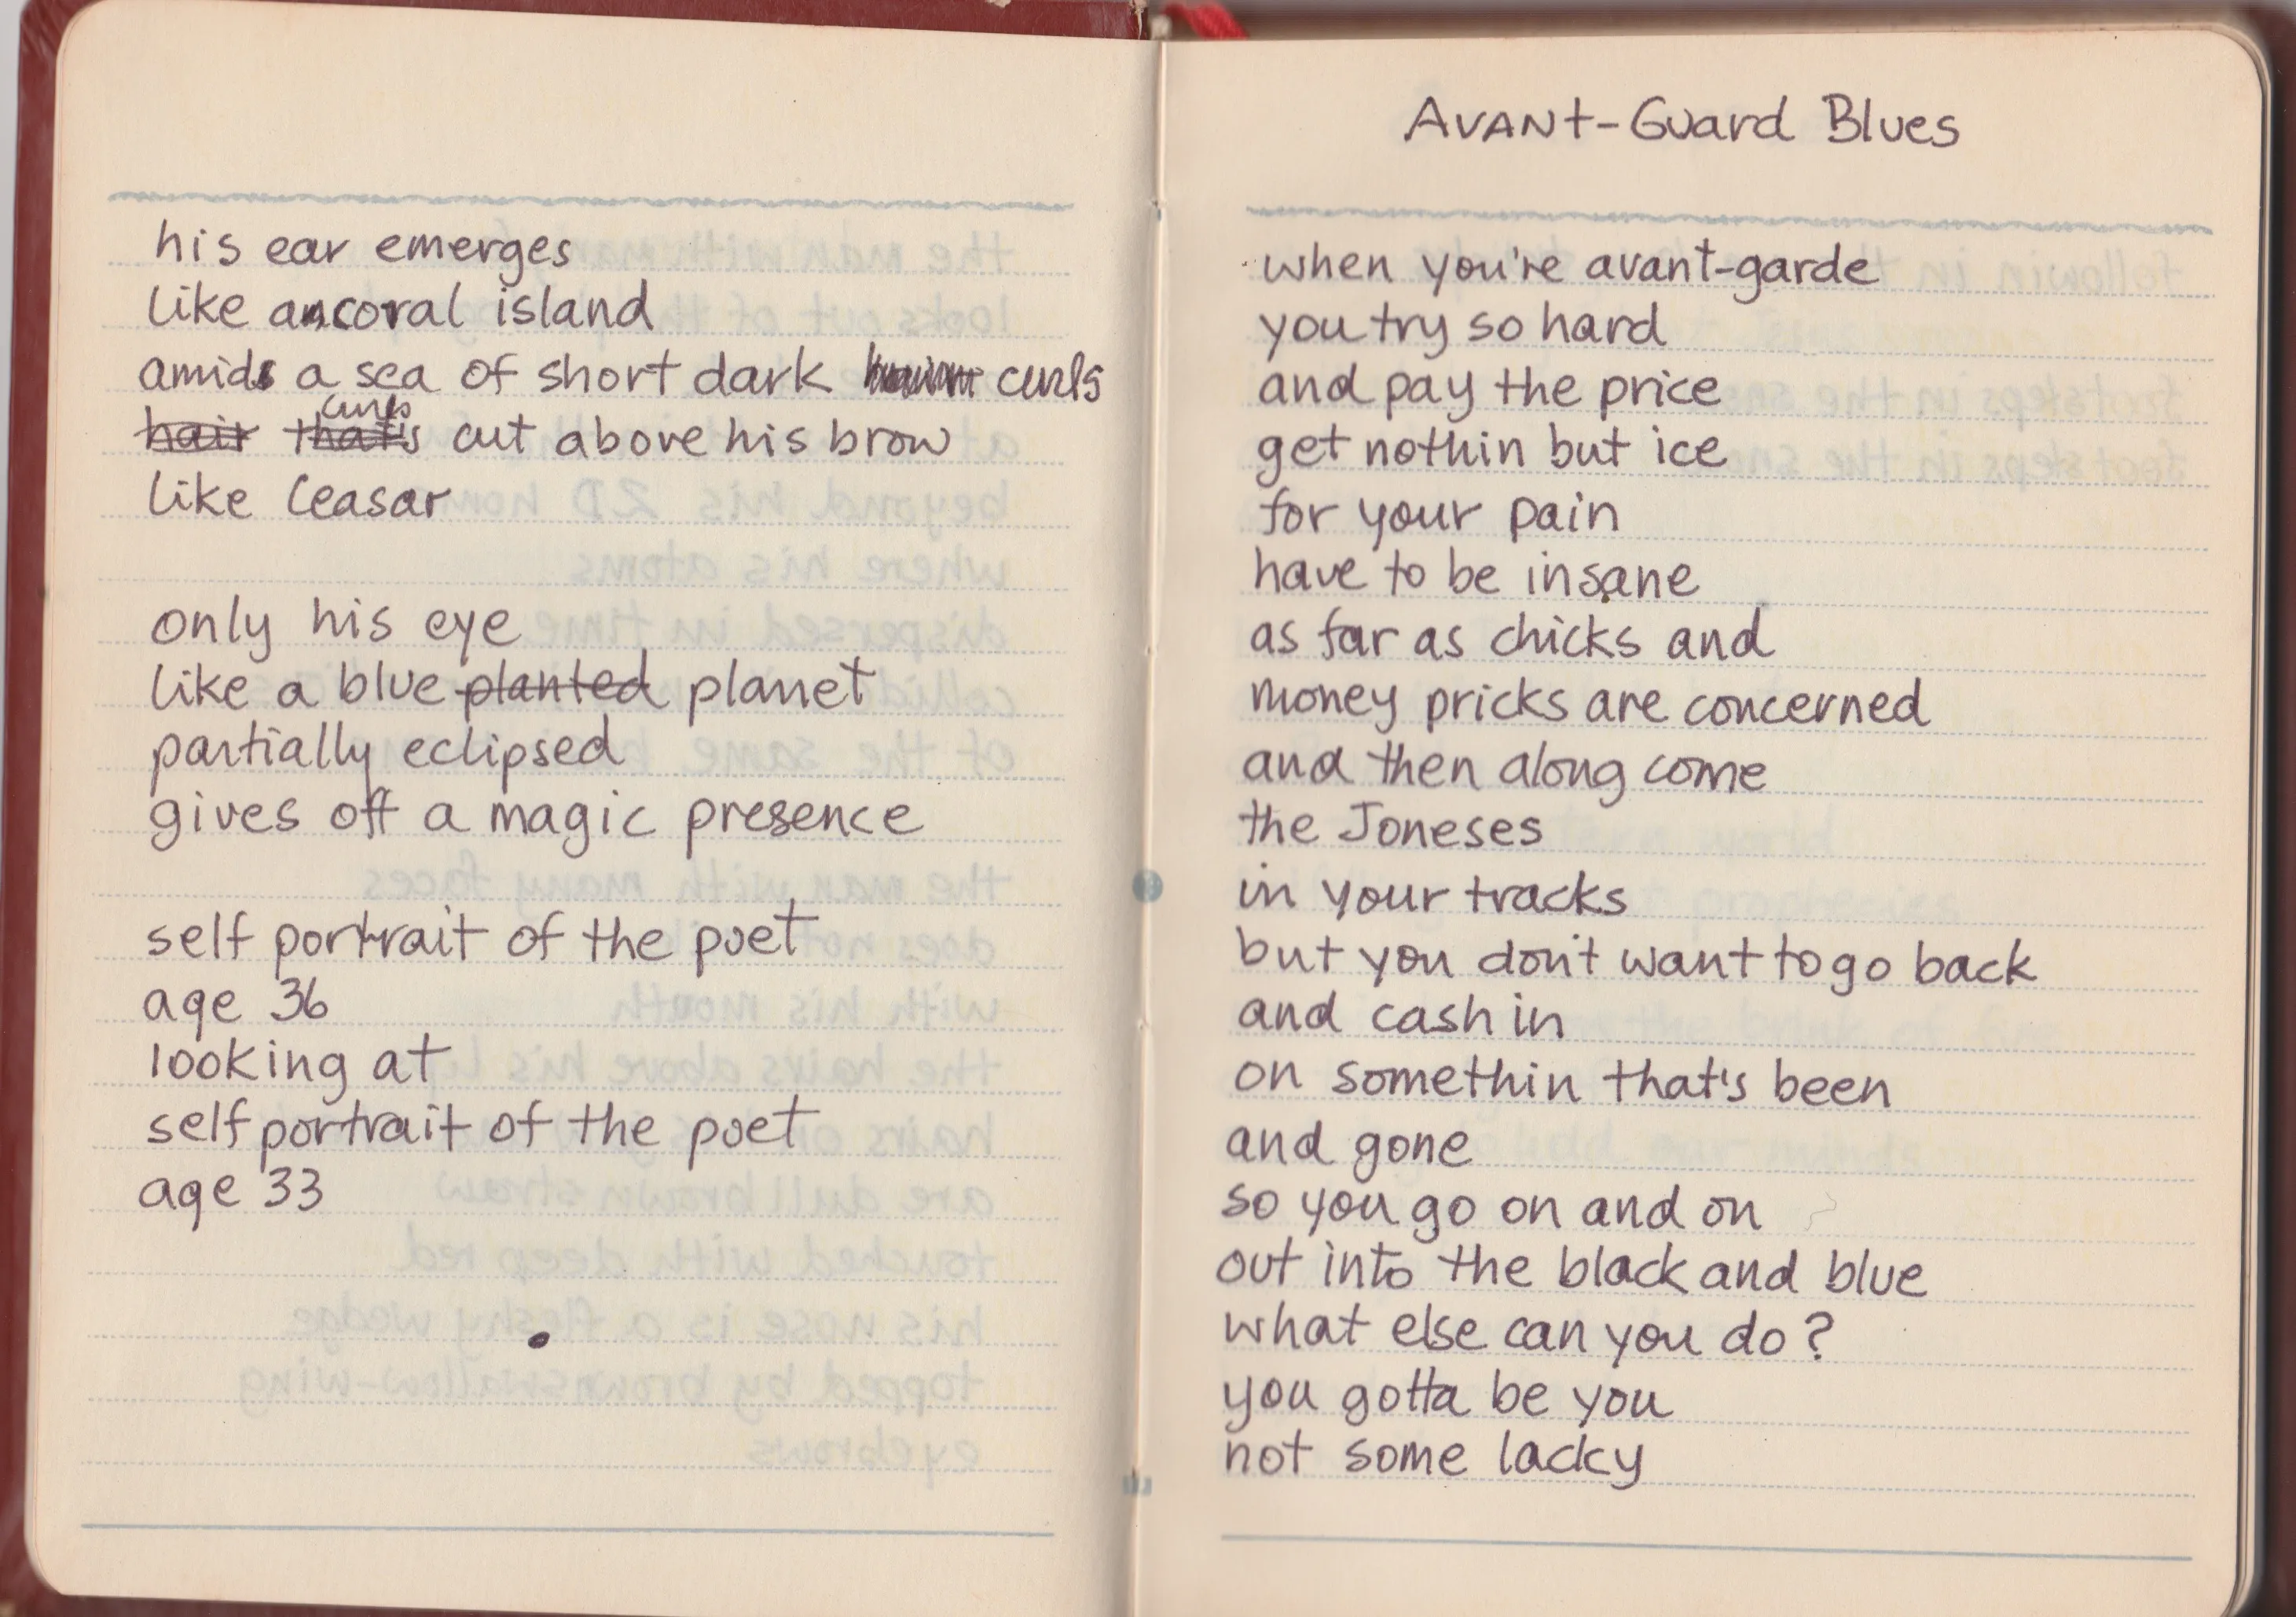 his ear emerges
like a coral island
amid a sea of short dark curls
hair that's cut above his brow
like Ceasar
only his eye
like a blue planted planet
partially eclipsed
gives off a magic presence
self portrait of the poet
age 36
looking at
self portrait of the poet
age 33
AVANT-Guard Blues
when you're avant-garde
you try so hard
and pay the price
get nothin but ice
for your pain
have to be insane
as far as chicks and
money pricks are concerned
and then along come
the Joneses
in your tracks
but you don't want to go back
and cash in
on somethin that's been
and gone
so you go on and on
out into the black and blue
what else can you do?
you gotta be you
not some lacky